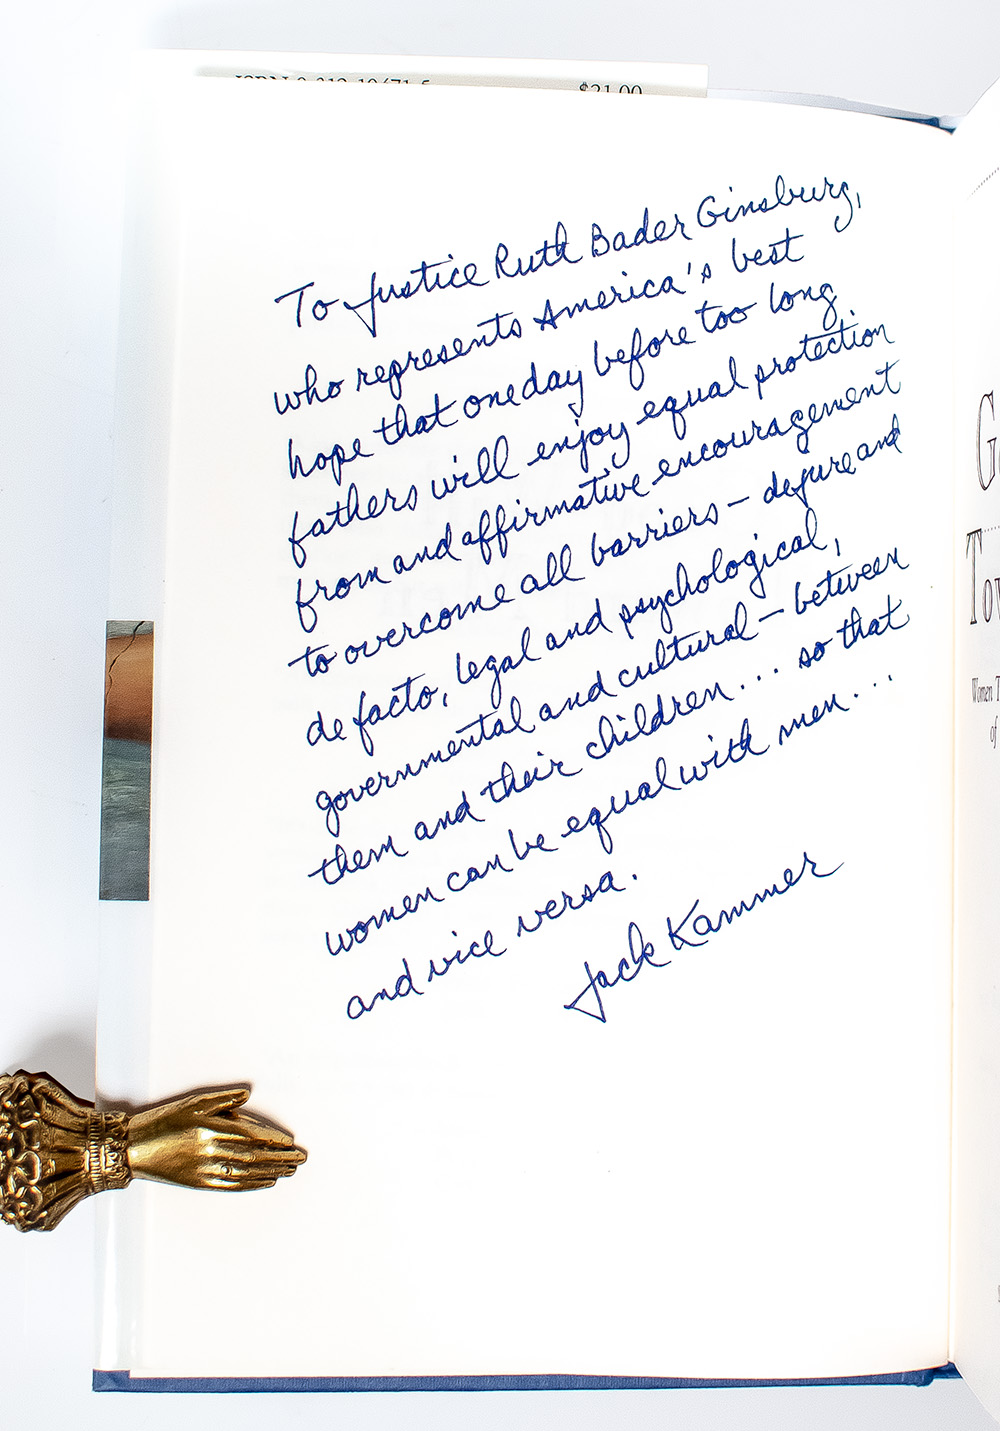 $21.00
To Justice Ruth Bader Ginsburg,
who represents America's best
hope that one day before too long
fathers will enjoy equal protection
from and affirmative encouragement
to overcome all barriers – de jure and
de facto, legal and psychological,
governmental and cultural – between
them and their children... so that
women can be equal with men...
and vice versa.
Jack Kammer
G
To
Women
of